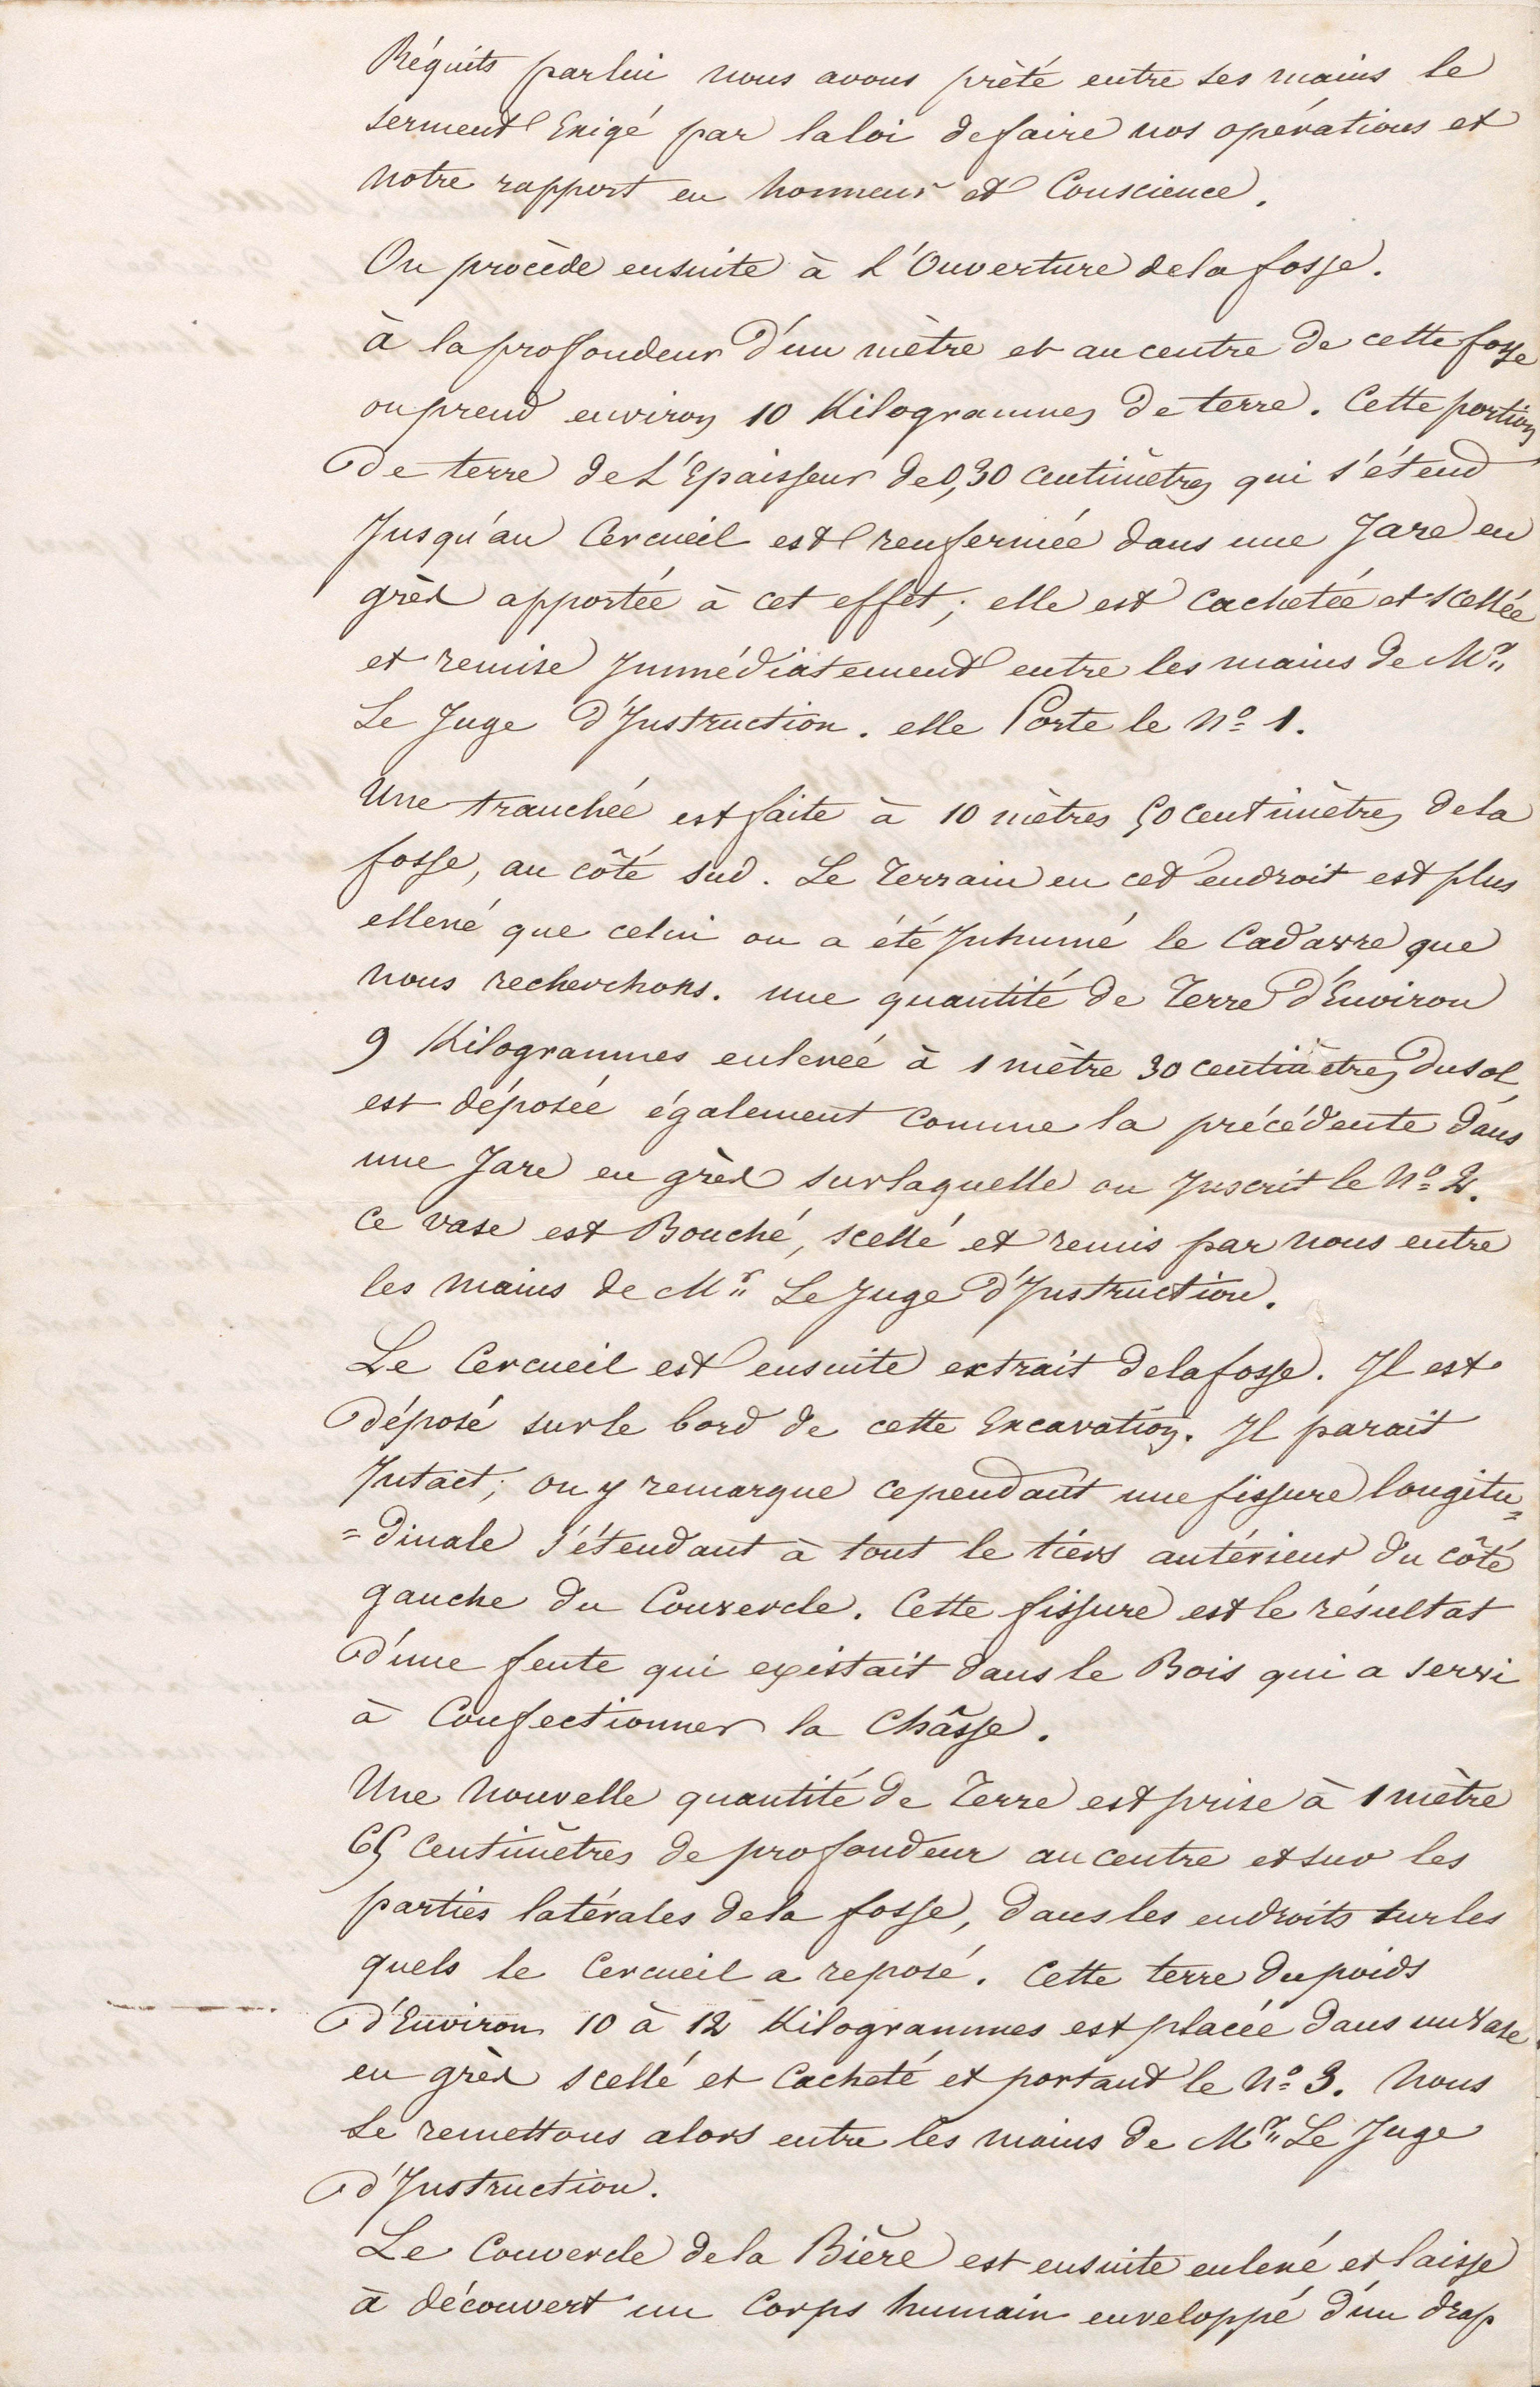 Réquits par lui nous avons prèté entre ses mains le
serment Exigé par la loi de faire nos opérations et
Notre rapport en honneur et Conscience.
On procède ensuite à L'Ouverture de la fosse.
à la profondeur d'un mètre et au centre de cette fosse
on prend environ 10 Kilogrammes de terre. Cette portion
de terre de L'Epaisseur de 0,30 centimètres qui s'étend
Jusqu'au Cercueil est renfermée dans une Jare en
grès apportée à cet effet; elle est Cachetée et scellée
et remise Immédiatement entre les mains de Mr
Le Juge d'Instruction. elle Porte le No 1.
Une tranchée est faite à 10 mètres 50 centimètres de la
fosse, au côté sud. Le Terrain en cet endroit est plus
ellevé que celui ou a été Inhumé le Cadavre que
nous recherchons. une quantité de Terre d'Environ
9 Kilogrammes enlevée à 1 mètre 30 centimètres du sol
est déposée également Comme la précédente dans
une Jare en grès sur laquelle on Inscrit le No 2.
Ce vase est Bouché, scellé et remis par nous entre
les mains de Mr Le Juge d'Instruction.
Le Cercueil est ensuite extrait de la fosse. Il est
déposé sur le bord de cette Excavation. Il parait
Intact; on y remarque cependant une fissure longitu=
=dinale s'étendant à tout le tiers antérieur du côté
gauche du Couvercle. Cette fissure est le résultat
d'une fente qui existait dans le Bois qui a servi
à Confectionner la Châsse.
Une Nouvelle quantité de Terre est prise à 1 mètre
65 Centimètres de profondeur au centre et sur les
parties latérales de la fosse, dans les endroits sur les
quels le Cercueil a reposé. Cette terre du poids
d'Environ 10 à 12 Kilogrammes est placée dans un vase
en grès scellé et Cacheté et portant le No 3. Nous
Le remettons alors entre les mains de Mr Le Juge
d'Instruction.
Le Couvercle de la Bière est ensuite enlevé et laisse
à découvert un Corps humain enveloppé d'un drap